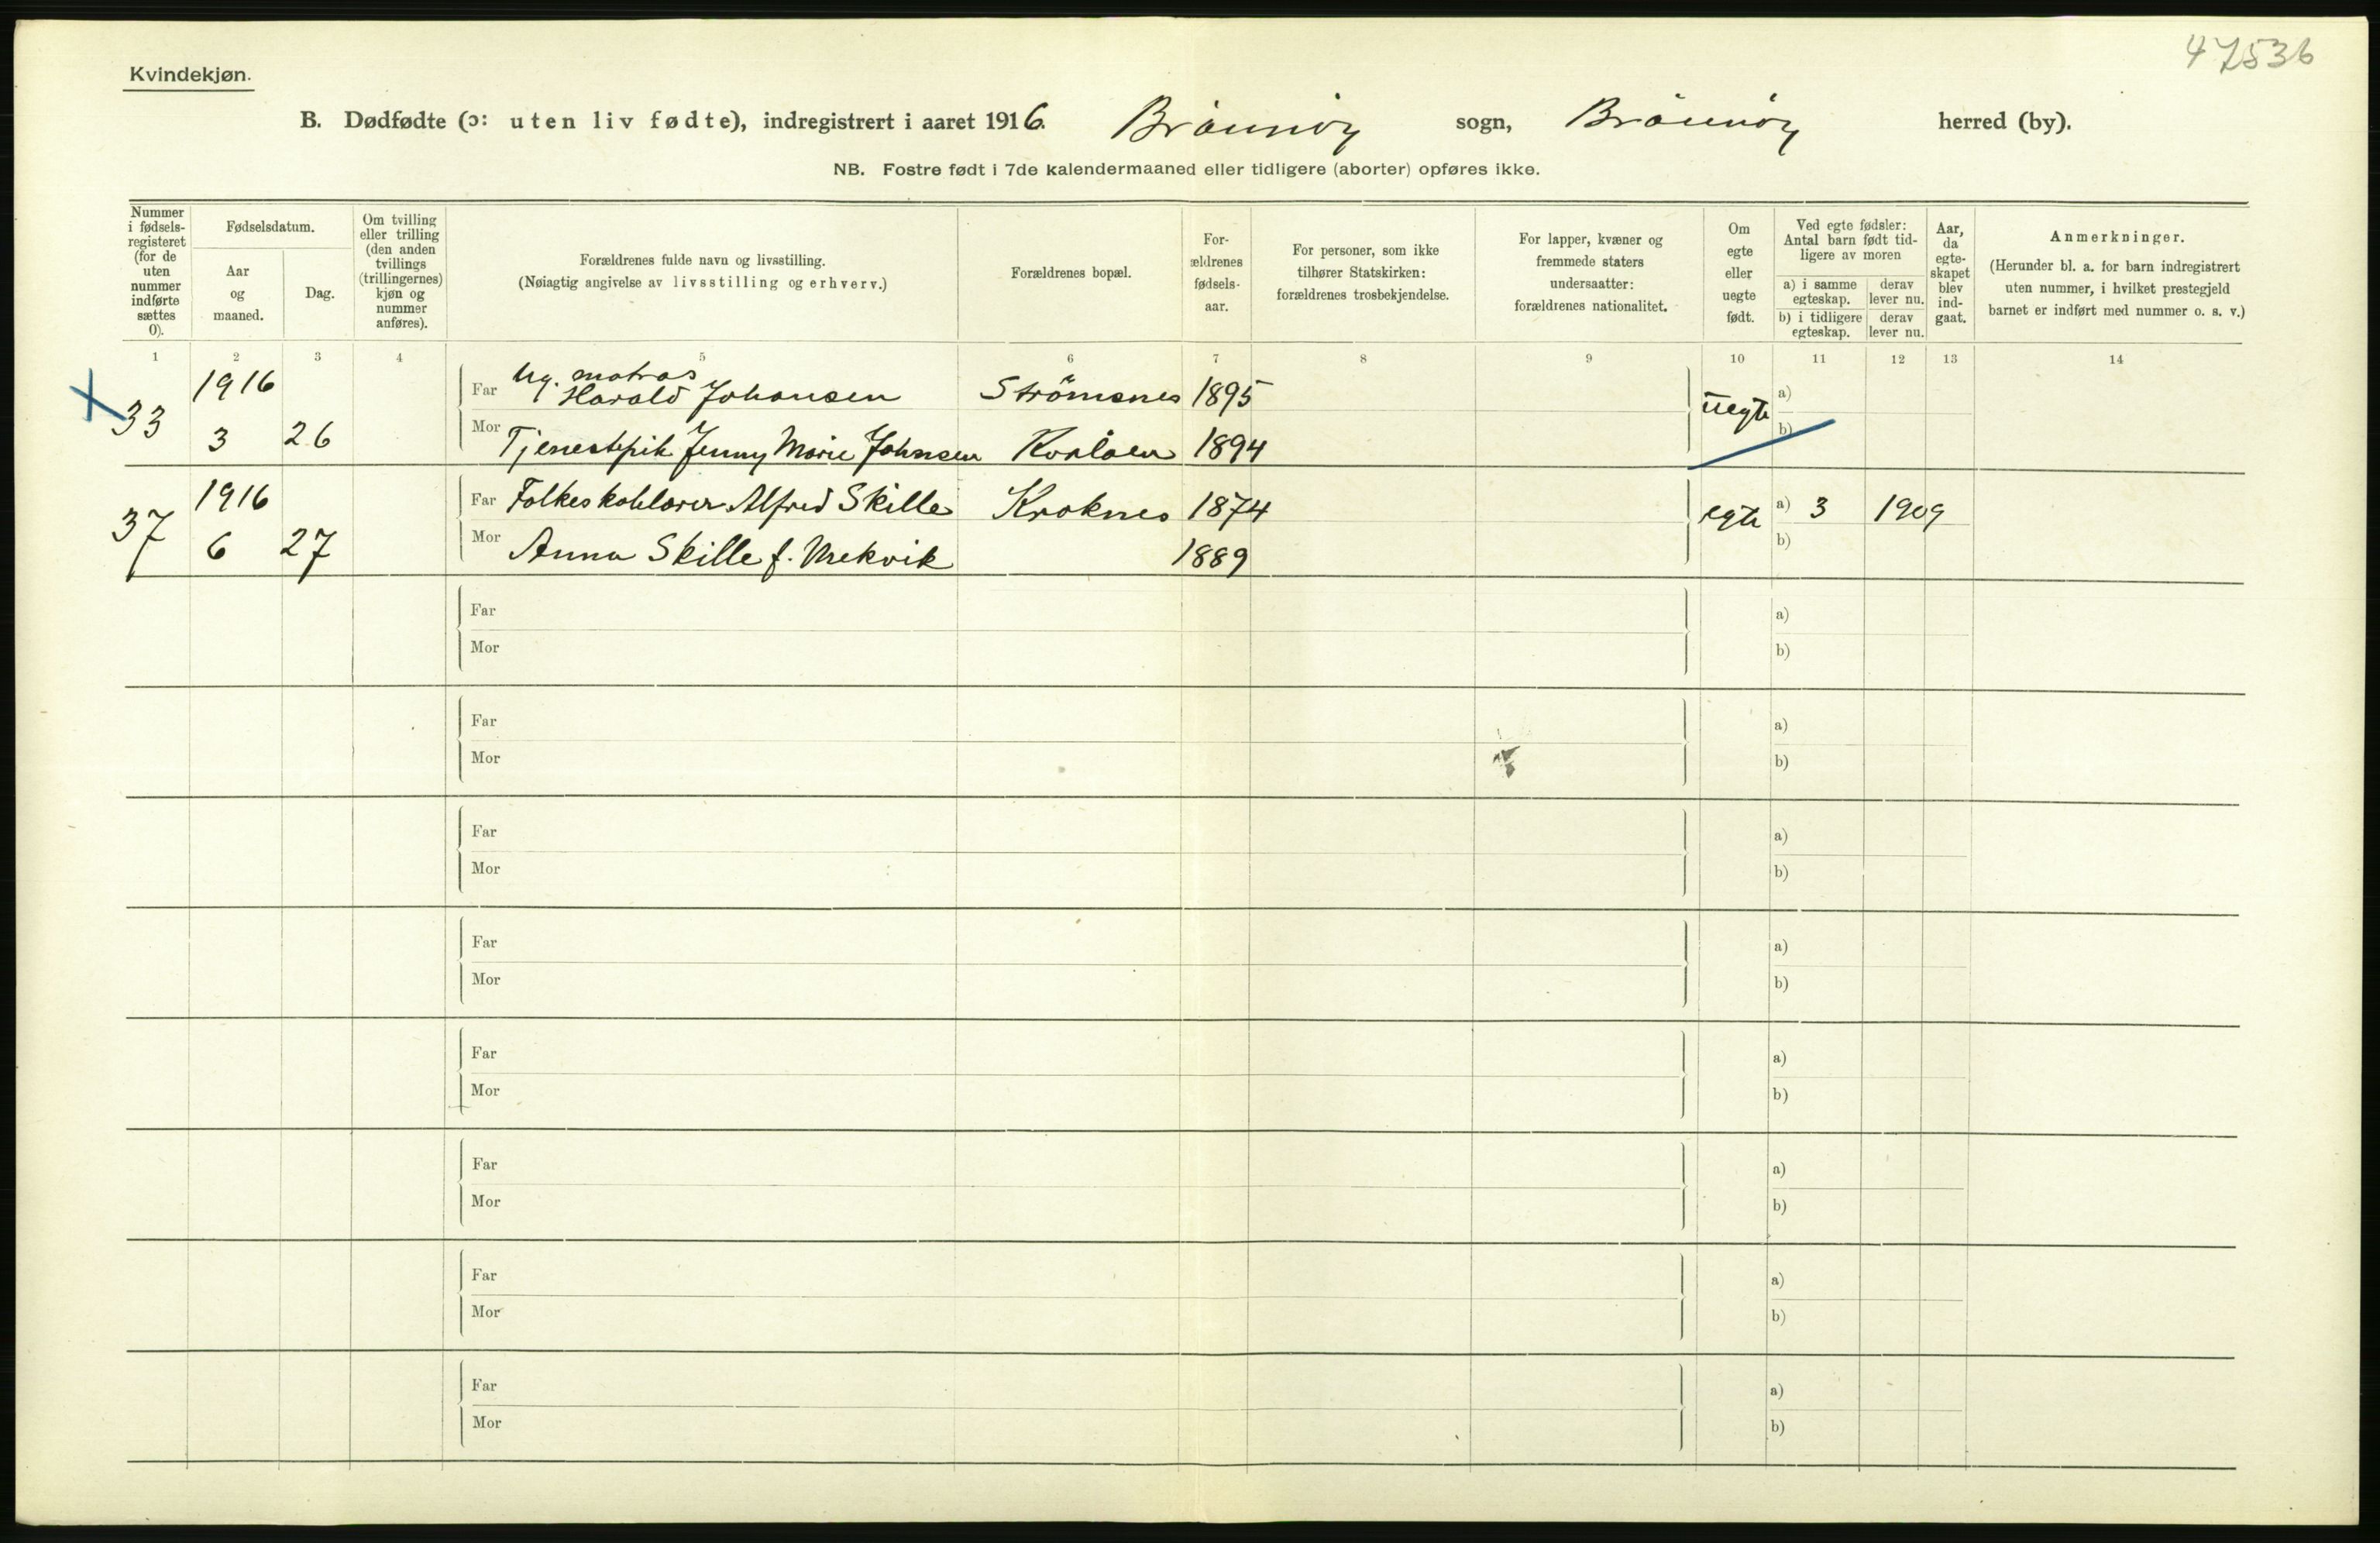 47536
Kvindekjøn.
B. Dødfødte (ɔ: uten liv fødte), indregistrert i aaret 1916. Brönnöy sogn, Brönnöy herred (by).
NB. Fostre født i 7de kalendermaaned eller tidligere (aborter) opføres ikke.
Nummer i fødsels-registeret (for de uten nummer indførte sættes 0).
Fødselsdatum.
Aar og maaned.
Dag.
Om tvilling eller trilling (den anden tvillings (trillingernes) kjøn og nummer anføres).
Forældrenes fulde navn og livsstilling.
(Nøiagtig angivelse av livsstilling og erhverv.)
Forældrenes bopæl.
For-ældrenes fødsels-aar.
For personer, som ikke tilhører Statskirken: forældrenes trosbekjendelse.
For lapper, kvæner og fremmede staters undersaatter: forældrenes nationalitet.
Om egte eller uegte født.
Ved egte fødsler: Antal barn født tid-ligere av moren
a) i samme egteskap.
derav lever nu.
b) i tidligere egteskap.
derav lever nu.
Aar, da egte-skapet blev ind-gaat.
Anmerkninger.
(Herunder bl. a. for barn indregistrert uten nummer, i hvilket prestegjeld barnet er indført med nummer o. s. v.)
1 2 3 4 5 6 7 8 9 10 11 12 13 14
X 33 1916 3 26 Far Ug. matros Harald Johansen Strömsnes 1895 uegte a)
Mor Tjenestepik Jenny Marie Johnsen Kvaløen 1894 b)
37 1916 6 27 Far Folkeskolelærer Alfred Skille Kroknes 1874 egte a) 3 1909
Mor Anna Skille f. 1889 b)
Far a)
Mor b)
Far a)
Mor b)
Far a)
Mor b)
Far a)
Mor b)
Far a)
Mor b)
Far a)
Mor b)
Far a)
Mor b)
Far a)
Mor b)